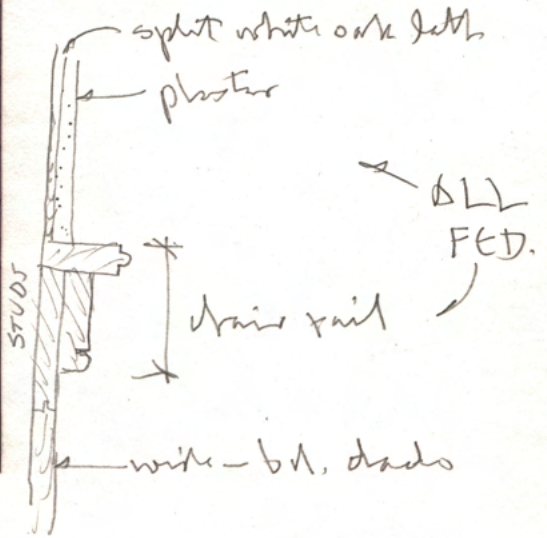 split white oak lath
plaster
ALL
FED.
STUDS
chair rail
wide-bd. dado